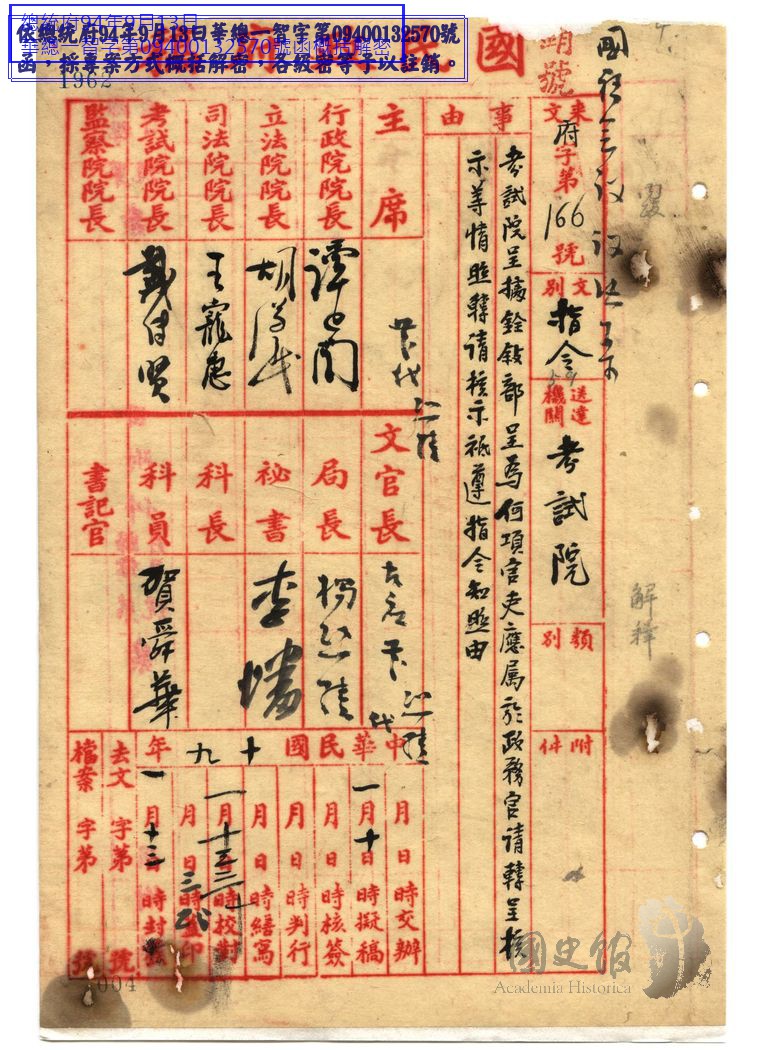 總統府94年9月13日
華總一智字第09400132570號函概括解密
依總統府94年9月13日華總一智字第09400132570號
函，採專案方式概括解密，各級密等予以註銷。
1962
國民
號
來文
府字第166號
文別
指令
送達機關
考試院
類別
附件
事由
考試院呈據銓敘部呈為何項官吏應屬於政務官請轉呈核
示等情照轉請核示祗遵指令知照由
主席
行政院院長
譚延闓
立法院院長
胡漢民
司法院院長
王寵惠
考試院院長
戴傳賢
監察院院長
文官長
局長
楊熙績
祕書
李蟠
科長
科員
賀舜華
書記官
中華民國十九年
月 日 時交辦
一月十日 時擬稿
月 日 時核簽
月 日 時判行
月 日 時繕寫
月 日 時校對
月 日 時蓋印
一月十三日 時封發
去文 字第 號
檔案 字第 號
解釋
004
國史館
Academia Historica